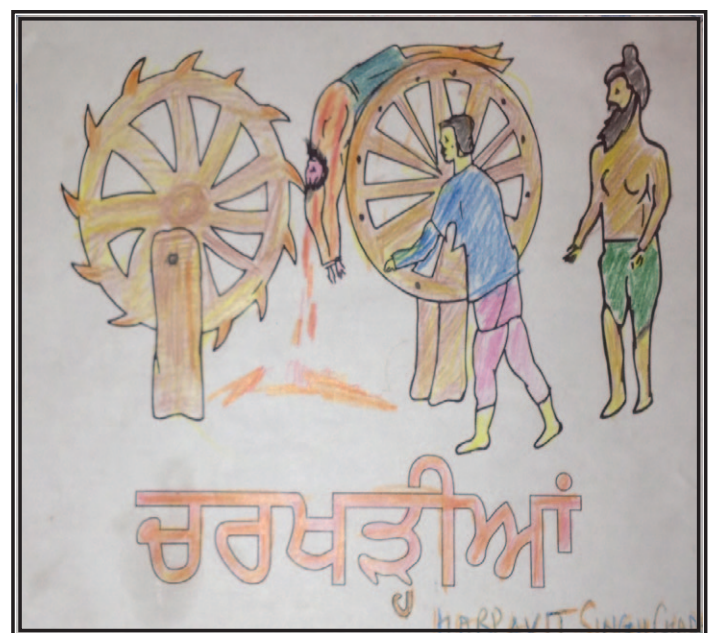 ਚਰਖੜੀਆਂ
HARPAVIT SINGH